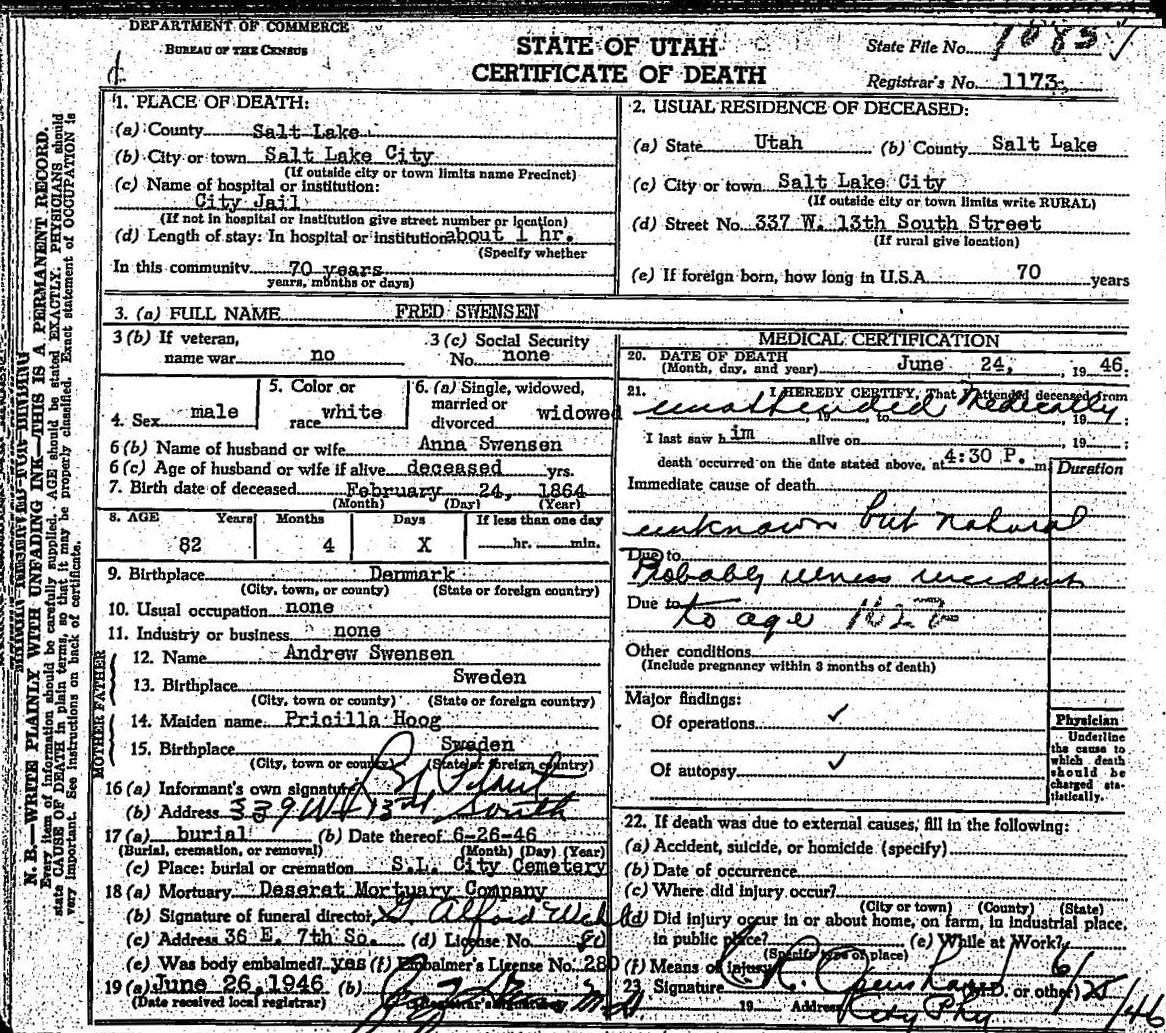 DEPARTMENT OF COMMERCE
BUREAU OF THE CENSUS
STATE OF UTAH
CERTIFICATE OF DEATH
State File No.
Registrar's No. 1173
N. B.—WRITE PLAINLY WITH UNFADING INK—THIS IS A PERMANENT RECORD.
Every item of information should be carefully supplied. AGE should be stated EXACTLY. PHYSICIANS should
state CAUSE OF DEATH in plain terms, so that it may be properly classified. Exact statement of OCCUPATION is
very important. See instructions on back of certificate.
1. PLACE OF DEATH:
(a) County Salt Lake
(b) City or town Salt Lake City
(If outside city or town limits name Precinct)
(c) Name of hospital or institution:
City Jail
(If not in hospital or institution give street number or location)
(d) Length of stay: In hospital or institution about 1 hr.
(Specify whether
In this community 70 years
years, months or days)
2. USUAL RESIDENCE OF DECEASED:
(a) State Utah (b) County Salt Lake
(c) City or town Salt Lake City
(If outside city or town limits write RURAL)
(d) Street No. 337 W. 13th South Street
(If rural give location)
(e) If foreign born, how long in U.S.A. 70 years
3. (a) FULL NAME FRED SWENSEN
3 (b) If veteran,
name war no
3 (c) Social Security
No. none
4. Sex male
5. Color or
race white
6. (a) Single, widowed,
married or
divorced widowed
6 (b) Name of husband or wife Anna Swensen
6 (c) Age of husband or wife if alive deceased yrs.
7. Birth date of deceased February 24, 1864
(Month) (Day) (Year)
8. AGE Years Months Days If less than one day
82 4 X hr. min.
9. Birthplace Denmark
(City, town, or county) (State or foreign country)
10. Usual occupation none
11. Industry or business none
FATHER
12. Name Andrew Swensen
13. Birthplace Sweden
(City, town or county) (State or foreign country)
MOTHER
14. Maiden name Pricilla Hoog
15. Birthplace Sweden
(City, town or county) (State or foreign country)
16 (a) Informant's own signature
(b) Address 339 W 13th South
17 (a) burial (b) Date thereof 6-26-46
(Burial, cremation, or removal) (Month) (Day) (Year)
(c) Place: burial or cremation S.L. City Cemetery
18 (a) Mortuary Deseret Mortuary Company
(b) Signature of funeral director
(c) Address 36 E. 7th So. (d) License No. 80
(e) Was body embalmed? yes (f) Embalmer's License No. 280
19 (a) June 26, 1946 (b)
(Date received local registrar)
MEDICAL CERTIFICATION
20. DATE OF DEATH
(Month, day, and year) June 24, 19 46
21. I HEREBY CERTIFY, That I attended deceased from
unattended Medically
, 19 , to , 19 ;
I last saw h im alive on , 19 ;
death occurred on the date stated above, at 4:30 P. m.
Duration
Immediate cause of death
unknown but natural
Due to
Probably illness incident
Due to to age 162
Other conditions
(Include pregnancy within 3 months of death)
Major findings:
Of operations ✓
Of autopsy ✓
Physician
Underline
the cause to
which death
should be
charged sta-
tistically.
22. If death was due to external causes, fill in the following:
(a) Accident, suicide, or homicide (specify)
(b) Date of occurrence
(c) Where did injury occur?
(City or town) (County) (State)
(d) Did injury occur in or about home, on farm, in industrial place,
in public place? (e) While at Work?
(Specify type of place)
(f) Means of injury
23. Signature (M.D. or other) 6/25/46
19 Address City Phy